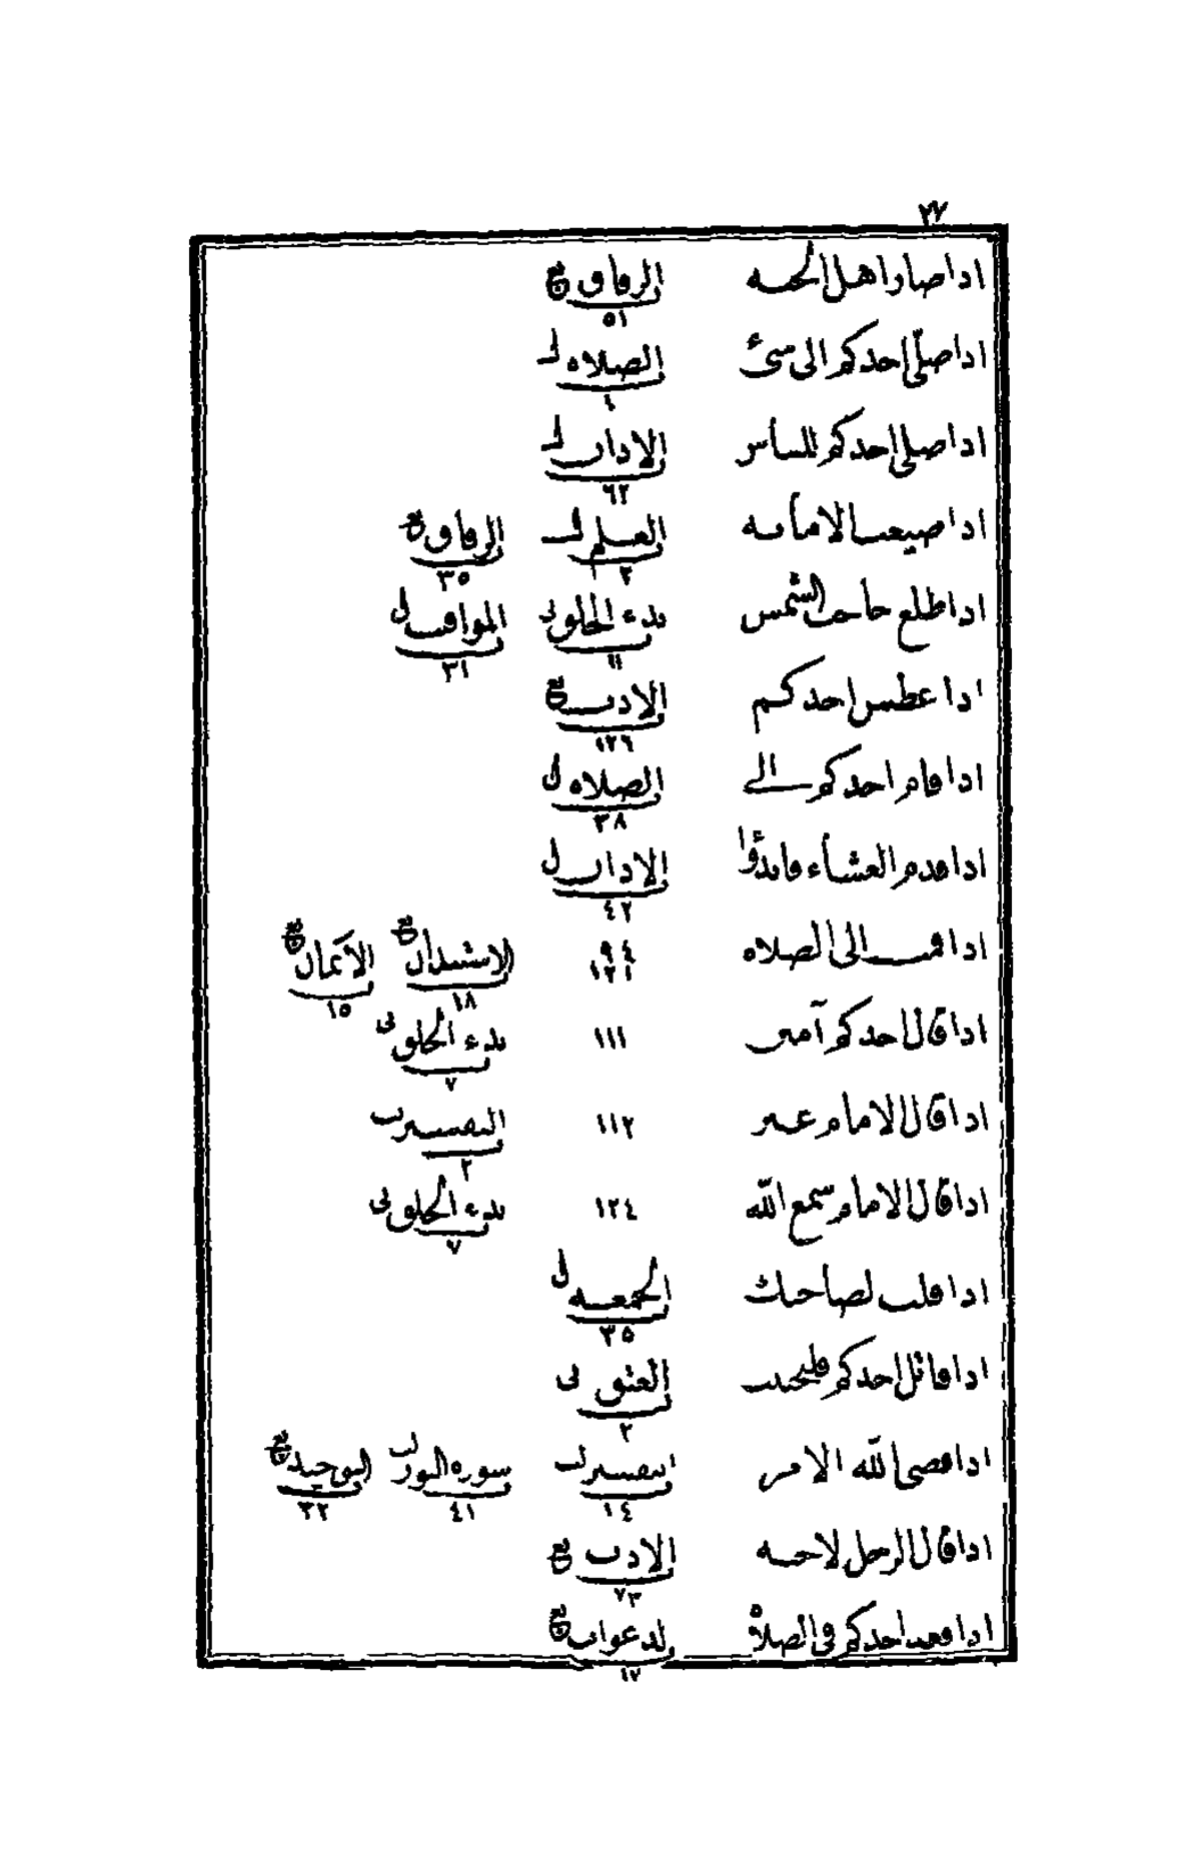 ٢٧
اذا صار اهل الجنه الرقاق ع
٥١
اذا صلّى احدكم الى شئ الصلاه ل
٤
اذا صلى احدكم للناس الاذان ل
٦٢
اذا ضيعت الامانه العلم ل الرقاق ع
٢ ٣٥
اذا طلع حاجب الشمس بدء الخلق ل المواقيت ل
١١ ٣١
اذا عطس احدكم الادب ع
١٢٦
اذا قام احدكم الى الصلاه ل
٣٨
اذا قدم العشاء فابدؤا الاذان ل
٤٢
اذا قمت الى الصلاه ٩٤ ١٢١ الاستيذان ع الأيمان ع
١٨ ١٥
اذا قال احدكم آمين ١١١ بدء الخلق ل
٧
اذا قال الامام غير ١١٢ التفسير ل
٢
اذا قال الامام سمع الله ١٢٤ بدء الخلق ل
٧
اذا قلت لصاحبك الجمعه ل
٣٥
اذا قاتل احدكم فليجتنب العتق ل
٢
اذا قضى الله الامر تفسير ل سوره النور ل التوحيد ع
١٤ ٤١ ٣٢
اذا قال الرجل لاخيه الادب ع
٧٣
اذا قعد احدكم فى الصلاة الدعوات ع
١٧